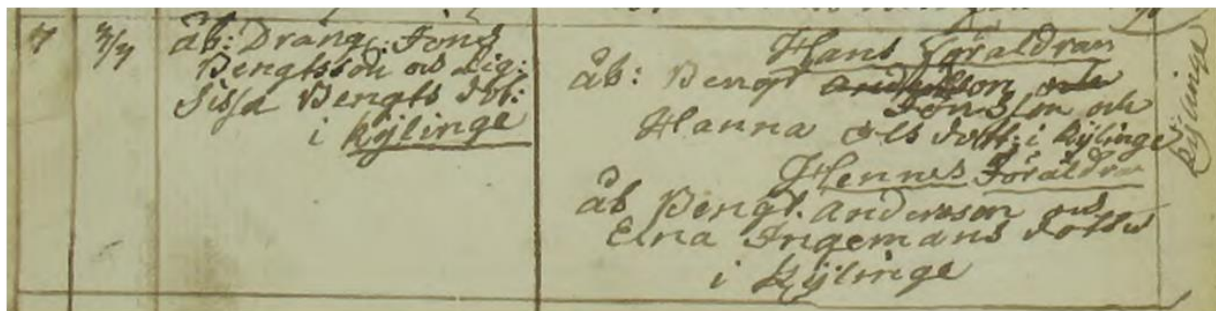 7
7/7
åb: Dräng: Jöns
Bengtsson och Pig:
Sissa Bengts dot:
i Kylinge
Hans Föräldrar
åb: Bengt
Jönsson och
Hanna Ols dott: i Kylinge
Hennes Föräldrar
åb Bengt Andersson och
Elna Ingemans dotter
i Kylinge
Kylinge